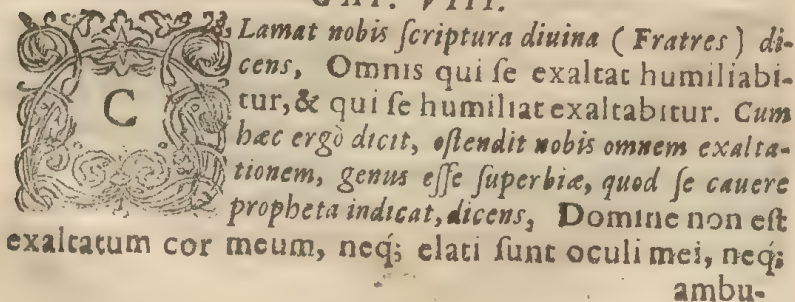 CAP. VIII.
CLamat nobis ſcriptura diuina (Fratres) di-
cens, Omnis qui ſe exaltat humiliabi-
tur, & qui ſe humiliat exaltabitur. Cum
hæc ergò dicit, oſtendit nobis omnem exalta-
tionem, genus eſſe ſuperbiæ, quod ſe cauere
propheta indicat, dicens, Domine non eſt
exaltatum cor meum, neq́; elati ſunt oculi mei, neq́;
ambu-